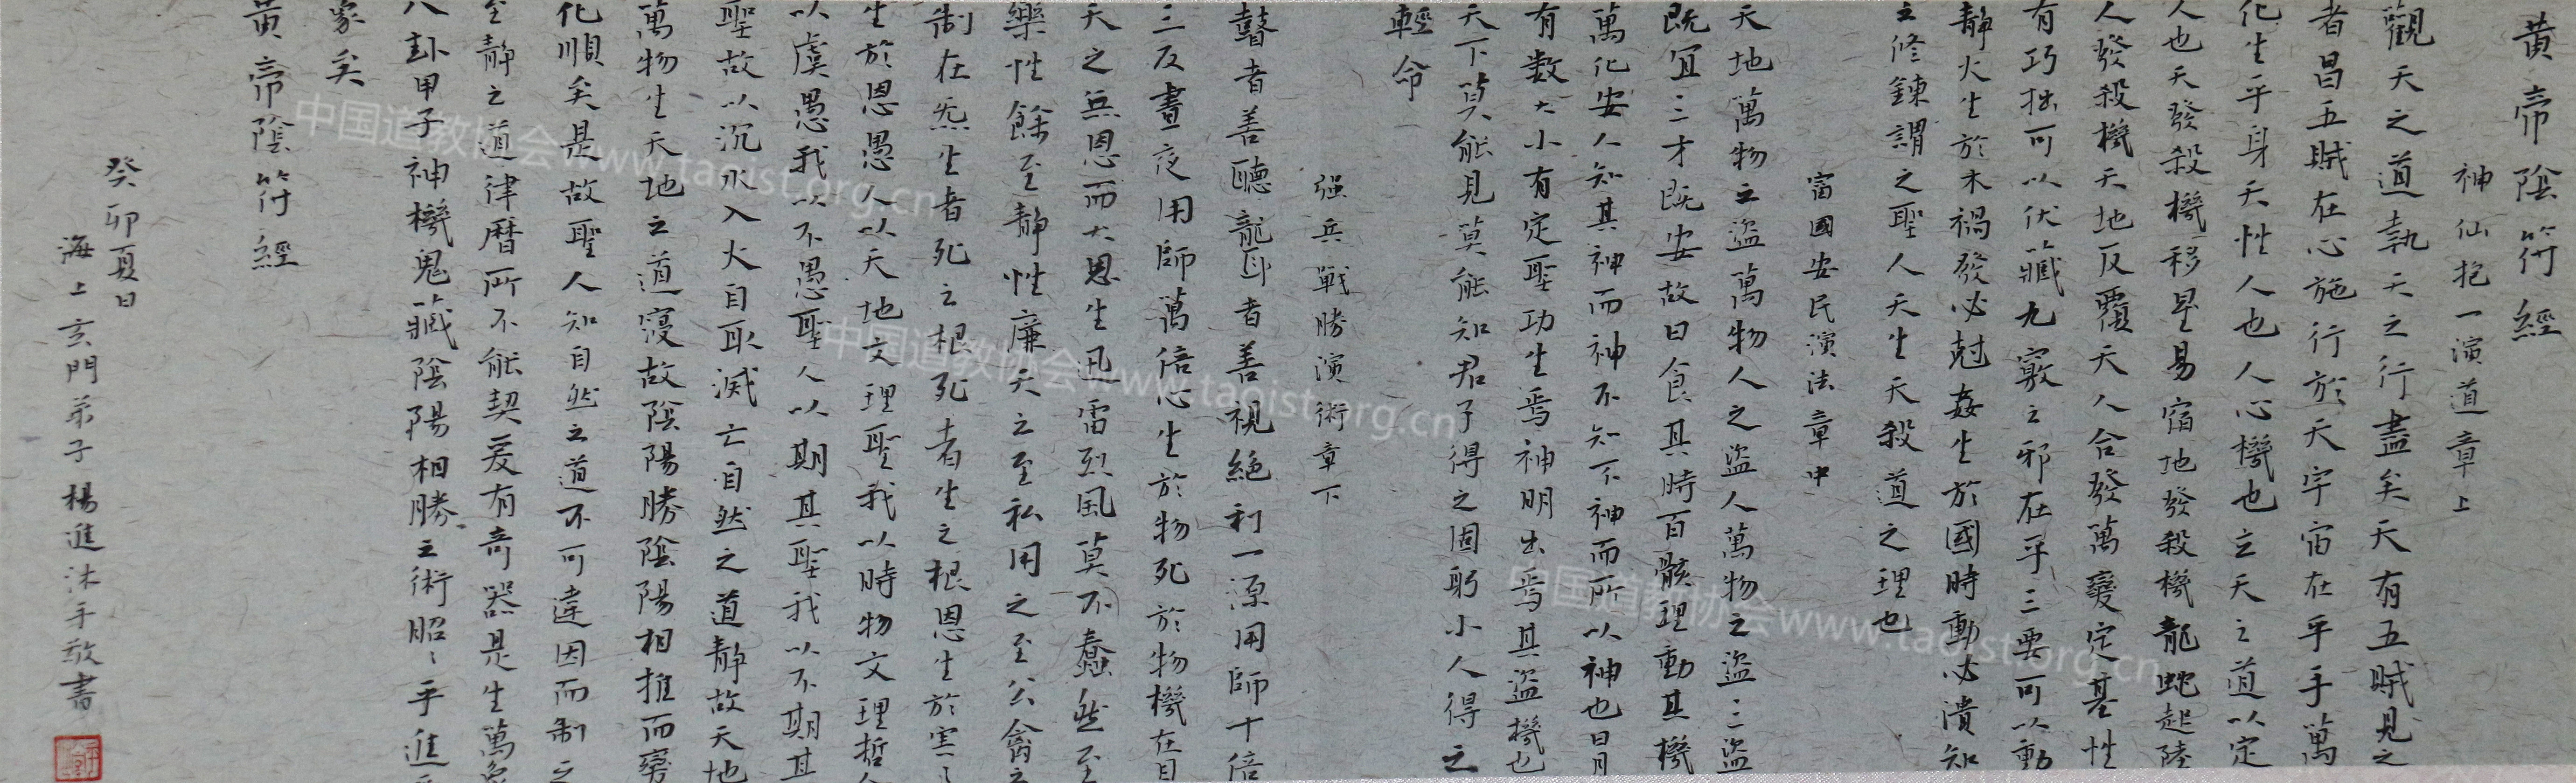 黃帝陰符經
神仙抱一演道章上
觀天之道執天之行盡矣天有五賊見之
者昌五賊在心施行於天宇宙在乎手萬
化生乎身天性人也人心機也立天之道以定
人也天發殺機移星易宿地發殺機龍蛇起陸
人發殺機天地反覆天人合發萬變定基性
有巧拙可以伏藏九竅之邪在乎三要可以動
靜火生於木禍發必尅姦生於國時動必潰知
之修鍊謂之聖人天生天殺道之理也
富國安民演法章中
天地萬物之盜萬物人之盜人萬物之盜三盜
既宜三才既安故曰食其時百骸理動其機
萬化安人知其神而神不知不神而所以神也日月
有数大小有定聖功生焉神明出焉其盜機也
天下莫能見莫能知君子得之固躬小人得之
輕命
强兵戰勝演術章下
瞽者善聽聾者善視絕利一源用師十倍
三反晝夜用師萬倍心生於物死於物機在目
天之無恩而大恩生迅雷烈風莫不蠢然至
樂性餘至靜性廉天之至私用之至公禽之
制在炁生者死之根死者生之根恩生於害害
生於恩愚人以天地文理聖我以時物文理哲人
以虞愚我以不愚聖人以期其聖我以不期其
聖故以沉水入火自取滅亡自然之道靜故天地
萬物生天地之道寖故陰陽勝陰陽相推而變
化順矣是故聖人知自然之道不可違因而制之
至靜之道律曆所不能契爰有奇器是生萬象
八卦甲子神機鬼藏陰陽相勝之術昭々乎進乎
象矣
黃帝陰符經
癸卯夏日
海上玄門弟子楊進沐手敬書
中国道教协会www.taoist.org.cn
中国道教协会www.taoist.org.cn
中国道教协会www.taoist.org.cn